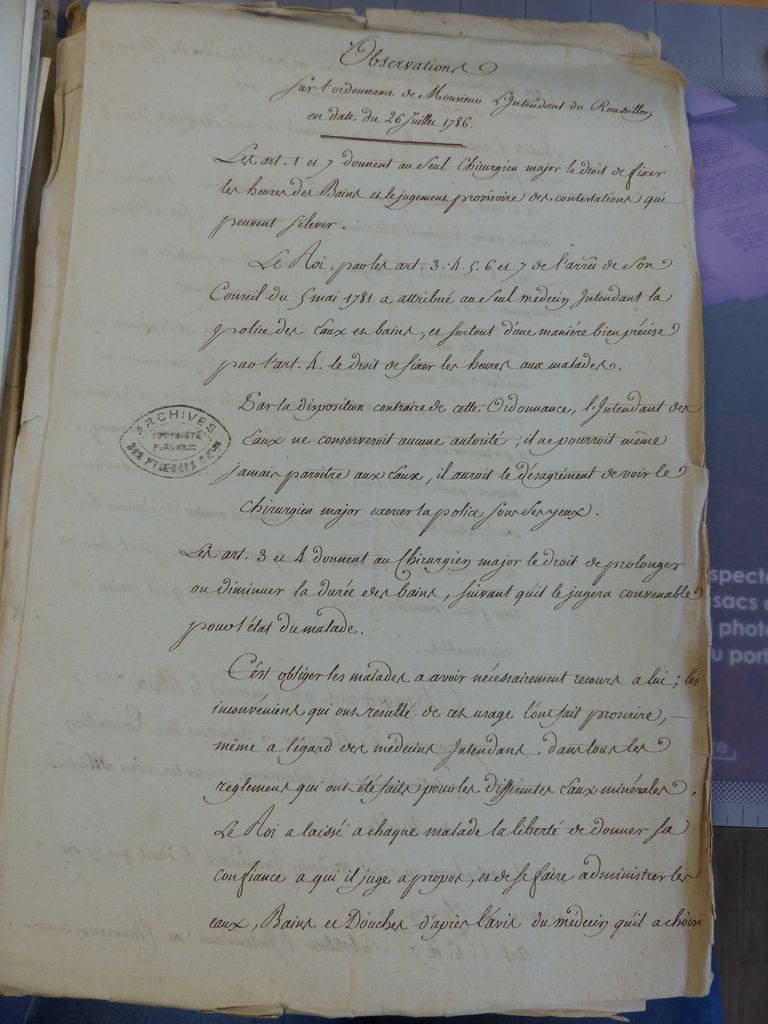 Observations
sur l'ordonnance de Monsieur L'Intendant du Roussillon
en date du 26 Juillet 1786.
Les art. 1 et 7 donnent au seul Chirurgien major le droit de fixer
les heures des Bains et le jugement provisoire des contestations qui
peuvent s'élever.
Le Roi, par les art. 3. 4. 5. 6 et 7 de l'arrêt de son
Conseil du 5 mai 1781 a attribué au seul médecin Intendant la
police des Eaux et bains, et surtout d'une maniére bien précise
par l'art. 4. le droit de fixer les heures aux malades.
Par la disposition contraire de cette Ordonnance, l'Intendant des
Eaux ne conserveroit aucune autorité; il ne pourroit même
jamais paroitre aux Eaux, il auroit le désagrément de voir le
Chirurgien major exercer la police sous ses yeux.
Les art. 3 et 4 donnent au Chirurgien major le droit de prolonger
ou diminuer la durée des bains, suivant qu'il le jugera convenable
pour l'état du malade.
C'est obliger les malades a avoir nécessairement recours a lui; les
inconvéniens qui ont resulté de cet usage l'ont fait proscrire,
même a l'égard des médecins Intendans. dans tous les
reglemens qui ont été faits pour les différentes Eaux minérales.
Le Roi a laissé a chaque malade la liberté de donner sa
confiance a qui il juge apropos, et de se faire administrer les
eaux, Bains et Douches d'après l'avis du médecin qu'il a choisi
ARCHIVES
DES PYRENEES
specte
sacs
photo
u port